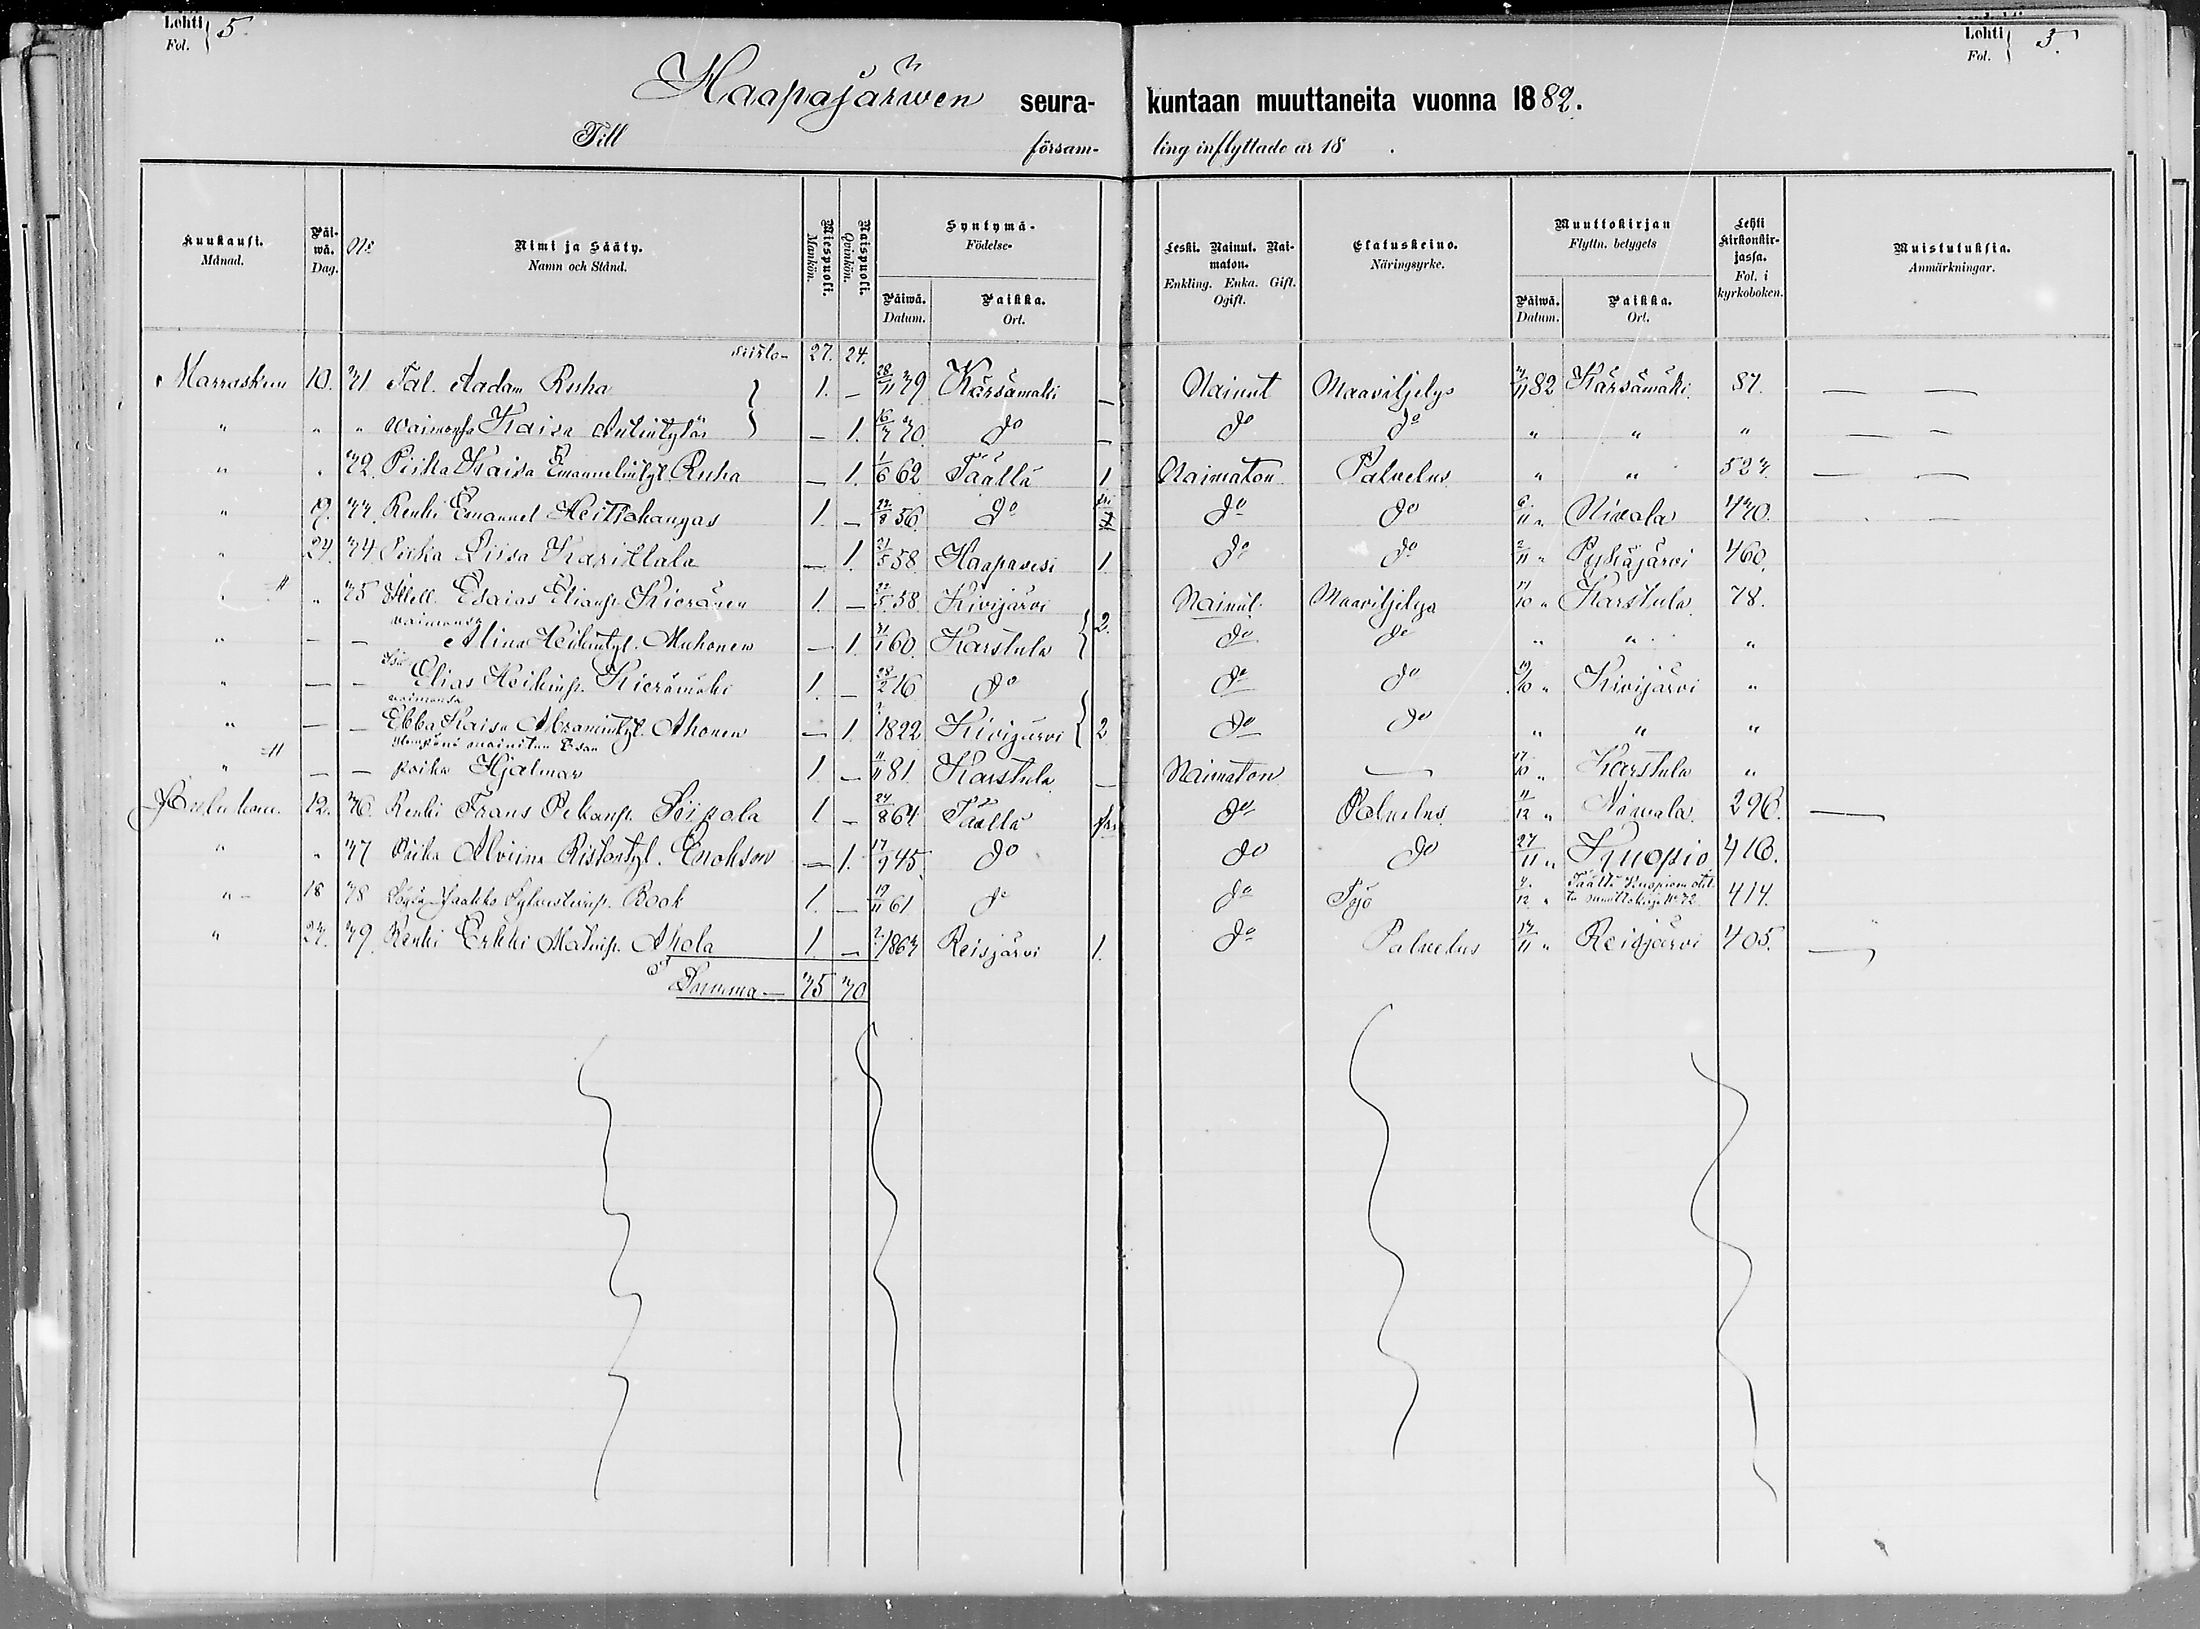 Lohti Fol. } 5.
Lohti Fol. } 5.
Haapajärwen seura- kuntaan muuttaneita vuonna 1882.
Till försam- ling inflyttade år 18 .
Kuukausi. Månad.
Päi-wä. Dag.
No
Nimi ja Sääty. Namn och Stånd.
Miespuoli. Mankön.
Naispuoli. Qvinkön.
Syntymä- Födelse-
Päiwä. Datum.
Paikka. Ort.
Leski. Nainut. Naimaton. Enkling. Enka. Gift. Ogift.
Elatuskeino. Näringsyrke.
Muuttokirjan Flyttn. betygets
Päiwä. Datum.
Paikka. Ort.
Lehti kirkonkirjassa. Fol. i kyrkoboken.
Muistutuksia. Anmärkningar.
Siirto- 27. 24.
Marraskuu 10. 31 Tal. Aadam Ruha } 1. — 28/11 39 Kärsämäki — Nainut Maaviljelys 3/11 82 Kärsämäki 87. — —
" " " waimonsa Kaisa } — 1. 16/3 30 do — do do " " " — —
" " 32. Piika Kaisa Emanuelintyt. Ruha — 1. 1/6 62 Täällä 1 Naimaton Palvelus " " 523. — —
" 19. 33. Renki Emanuel HeitTokangas 1. — 22/8 56. do do do 6/11 " Nivala 430. - -
" 24. 34 Piika Liisa Karittala — 1. 21/5 58. Haapavesi 1. do do 2/11 " Pyhäjärvi 460.
" " 35 Itsell. Esaias Elianp. Kieränen 1. — 22/5 58 Kivijärvi Nainut. Maaviljelys 17/10 " Karstula 78.
vaimonsa
" — — Alina Heikintyt. Muhonen — 1. 31/1 60. Karstula } 2. do do " " "
Isä
" — — Elias Heikinp. Kierämäki 1. — 28/2 16 do do do 19/10 " Kivijärvi "
vaimonsa
" — — Ebba Kaisa Abramintyt. Ahonen — 1. 1822. Kivijärvi } 2 do do " " "
" — — poika Hjalmar 1 — 11/11 81. Karstula — Naimaton — 17/10 " Karstula "
Joulukuu. 12. 36. Renki Frans Pekanp. Siipola 1 — 24/8 64. Täällä do Palvelus 11/12 " Nivala 296. —
" " 37 Piika Alviina Ristontyt. Enokson — 1. 17/9 45. do do do 27/11 " Kuopio 416.
" - 18 38 Jaakko Sylvesterinp. Book 1. — 19/11 61. do do Työ 4/12 " Täältä Kuopioon otettu muuttokirja No 72. 414.
" 27. 39. Renki Erkki Matinp. Ahola 1. — 1863 Reisjärvi 1. do Palvelus 13/11 " Reisjärvi 405. —
Summa — 35 30